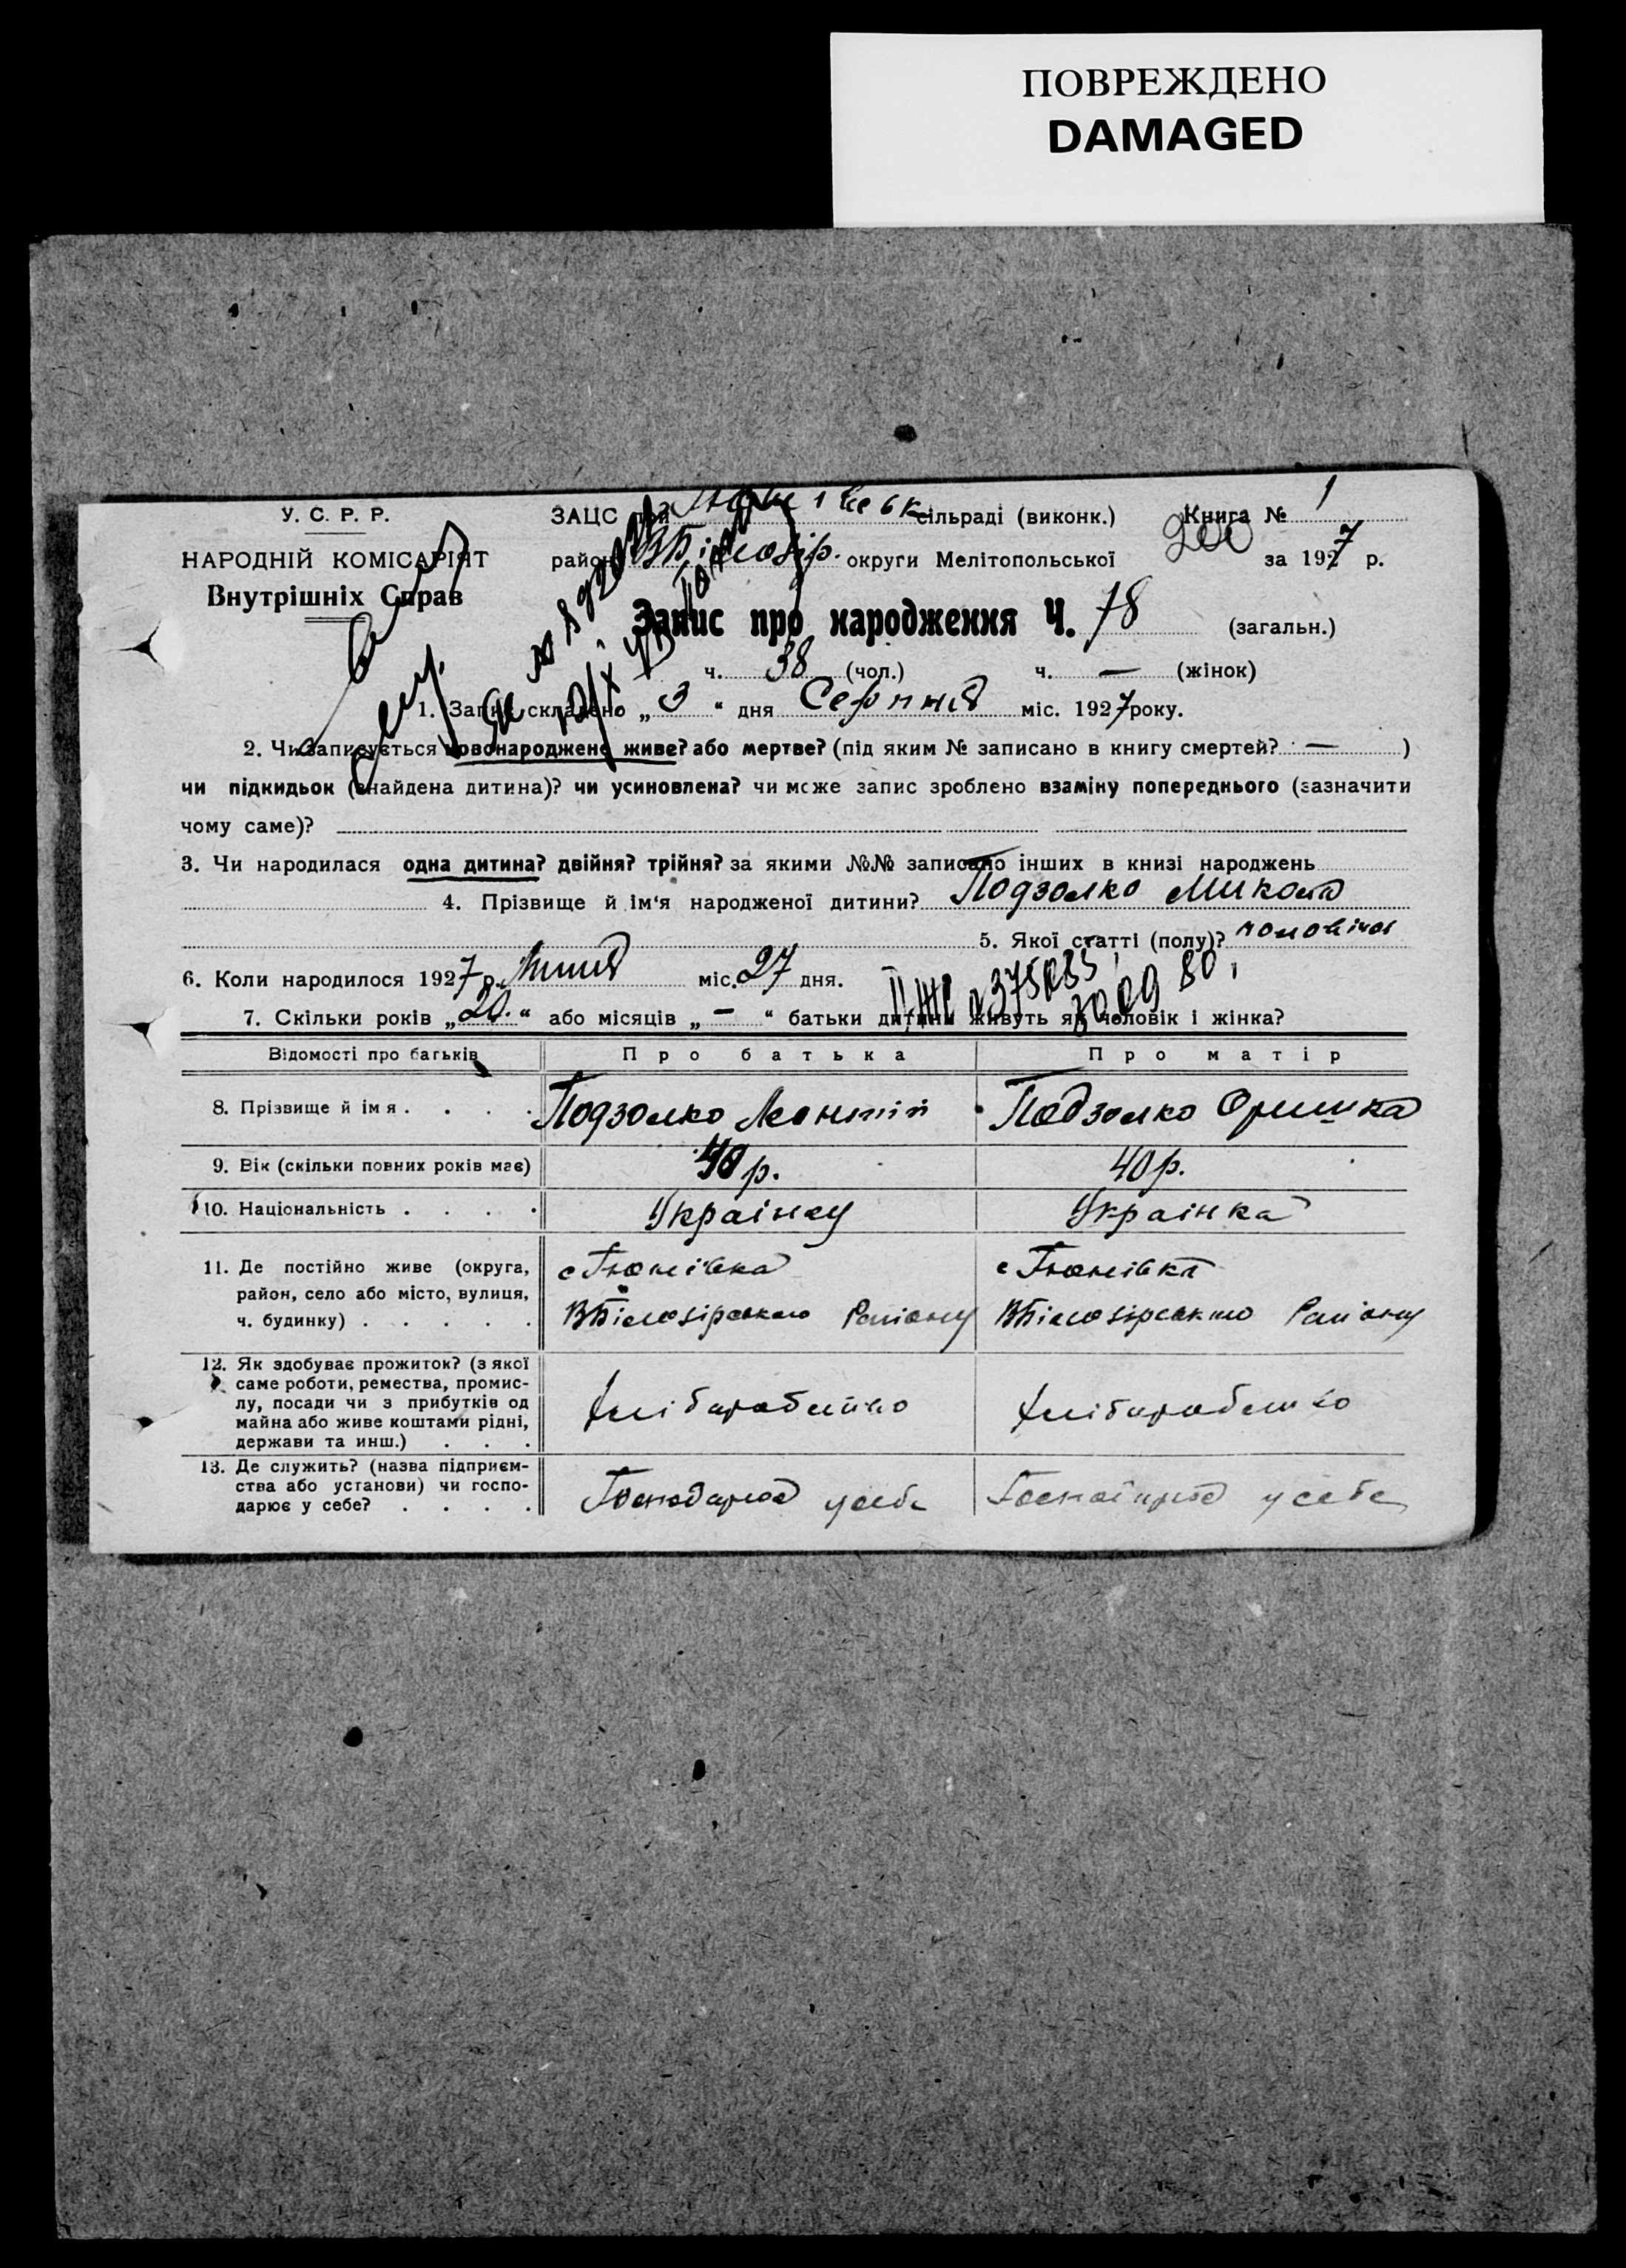 ПОВРЕЖДЕНО
DAMAGED
У. С. Р. Р.
НАРОДНІЙ КОМІСАРІЯТ
Внутрішніх Справ
ЗАЦС при Тюшківськ сільраді (виконк.) Книга № 1
район ВБілозір. округи Мелітопольської 200 за 1927 р.
Запис про народження Ч. 78 (загальн.)
ч. 38 (чол.) ч. — (жінок)
1. Запис складено „ 3 “ дня Серпня міс. 1927 року.
2. Чи записується новонароджене живе? або мертве? (під яким № записано в книгу смертей? — )
чи підкидьок (знайдена дитина)? чи усиновлена? чи може запис зроблено взаміну попереднього (зазначити
чому саме)?
3. Чи народилася одна дитина? двійня? трійня? за якими №№ записано інших в книзі народжень
4. Прізвище й ім‘я народженої дитини? Подзолко Микола
5. Якої статті (полу)? чоловічої
6. Коли народилося 1927 р. Липня міс. 27 дня.
7. Скільки років „ 20. “ або місяців „ — “ батьки дитини живуть як чоловік і жінка?
Відомості про батьків Про батька Про матір
8. Прізвище й імя . . . . Подзолко Леонтій Подзолко Оришка
9. Вік (скільки повних років має) 48 р. 40 р.
10. Національність . . . . Українец Українка
11. Де постійно живе (округа,
район, село або місто, вулиця,
ч. будинку) . . . . .
с Тюшківка
ВБілозірського Району
с Тюшківка
ВБілозірського Району
12. Як здобуває прожиток? (з якої
саме роботи, ремества, промис-
лу, посади чи з прибутків од
майна або живе коштами рідні,
держави та инш.) . . .
хліборобство хліборобство
13. Де служить? (назва підприєм-
ства або установи) чи госпо-
дарює у себе? . . . .
Господарює у себе Господарює у себе